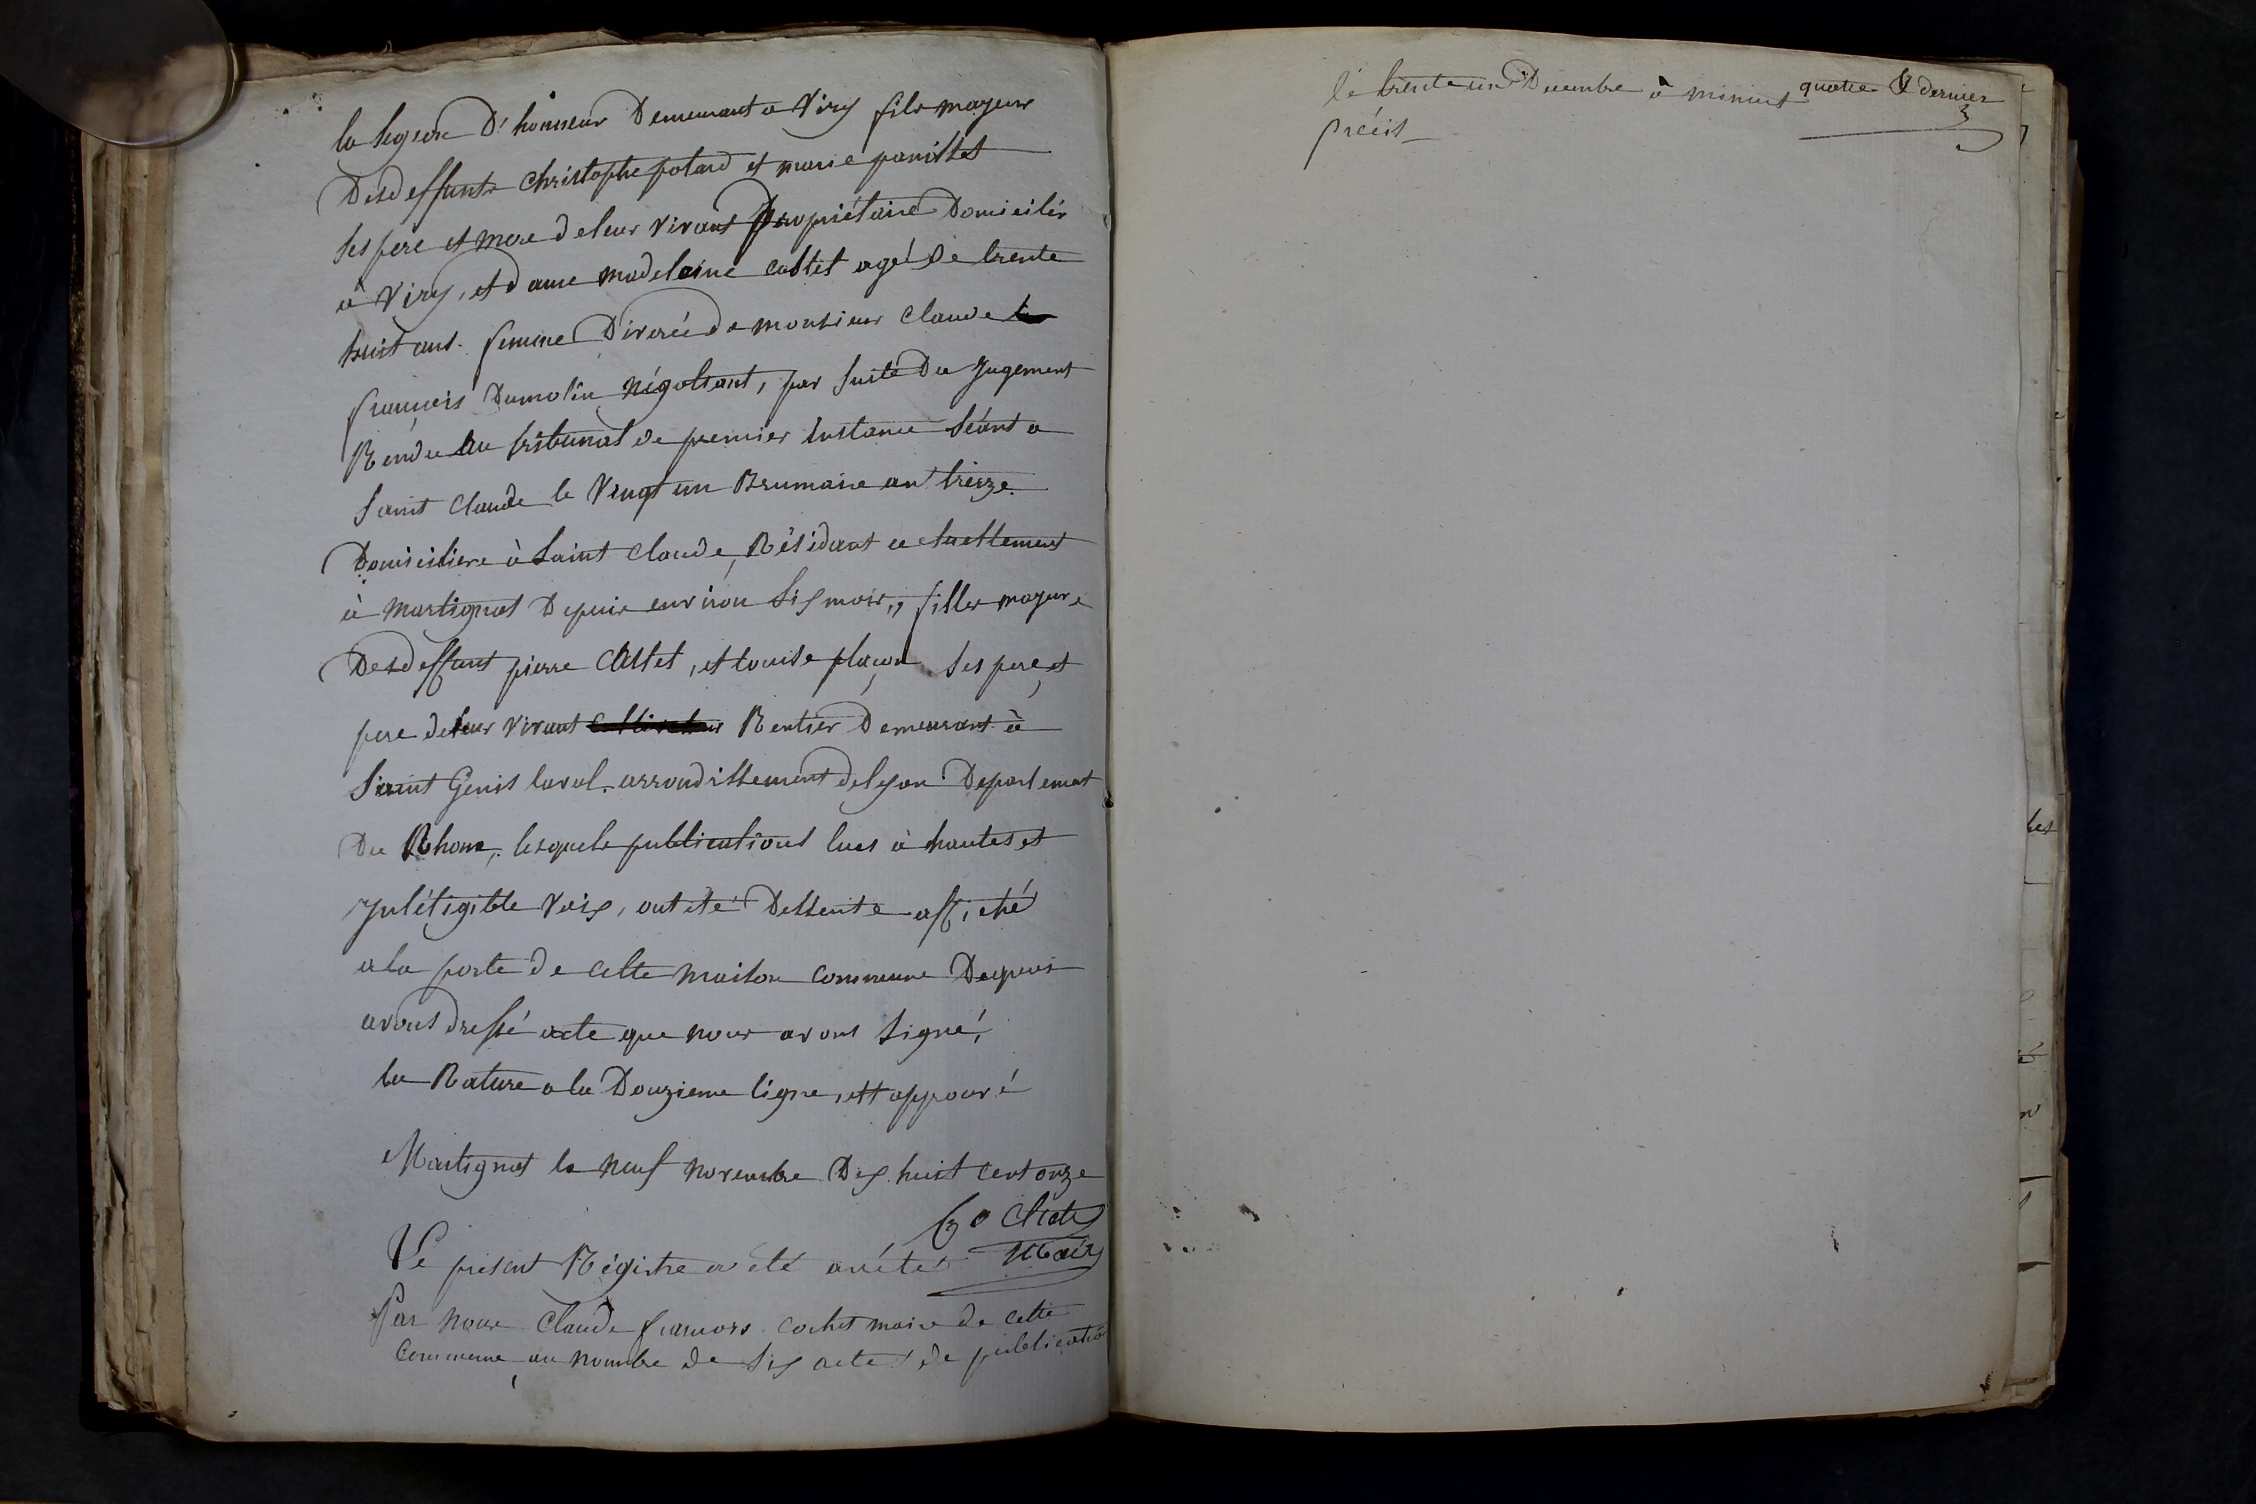 la Legion D'honneur Demeurant a Viry fils mayeur
Desdeffunts Christophe potard et marie panisset
ses pere et mere de leur vivant Propriétaire Domiciliés
à Viry, et dame madelaine Castet agé De trente
huit ans. femme Divorcée de monsieur Claude
francois Dumolin Négotiant, par suite Du Jugement
Rendu au tribunal de premier instance Séant a
Saint Claude le Vingt un Brumaire an treize.
Domiciliere à Saint Claude, Résidant actuellement
à Martignat Depuis environ Six mois,, filles mayeure
Desdeffunt pierre Castet, et louise plaçon ses pere, et
pere deleur vivant cultivateur Rentier Demeurant à
Saint Genis laval. arrondissement delyon Departement
Du Rhone, lesquels publications lues à hautes et
Jnlétigible Voix, ont été Dessente affiché
a la porte de cette Maison commune Dequoi
avons dressé acte que nous avons Signé,
la Rature a la Douzieme ligne, est approuvé
Martignat le Neuf Novembre Dix huit cent onze
Maire
Le present Régistre a été arrété
Par Nous Claude francois cochet maire de cette
Commune au nombre de Six actes de publication
quatre & dernier
le trente un Decembre à minuit
précis